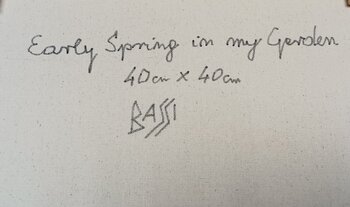 Early Spring in my Garden
40cm x 40cm
BASSI